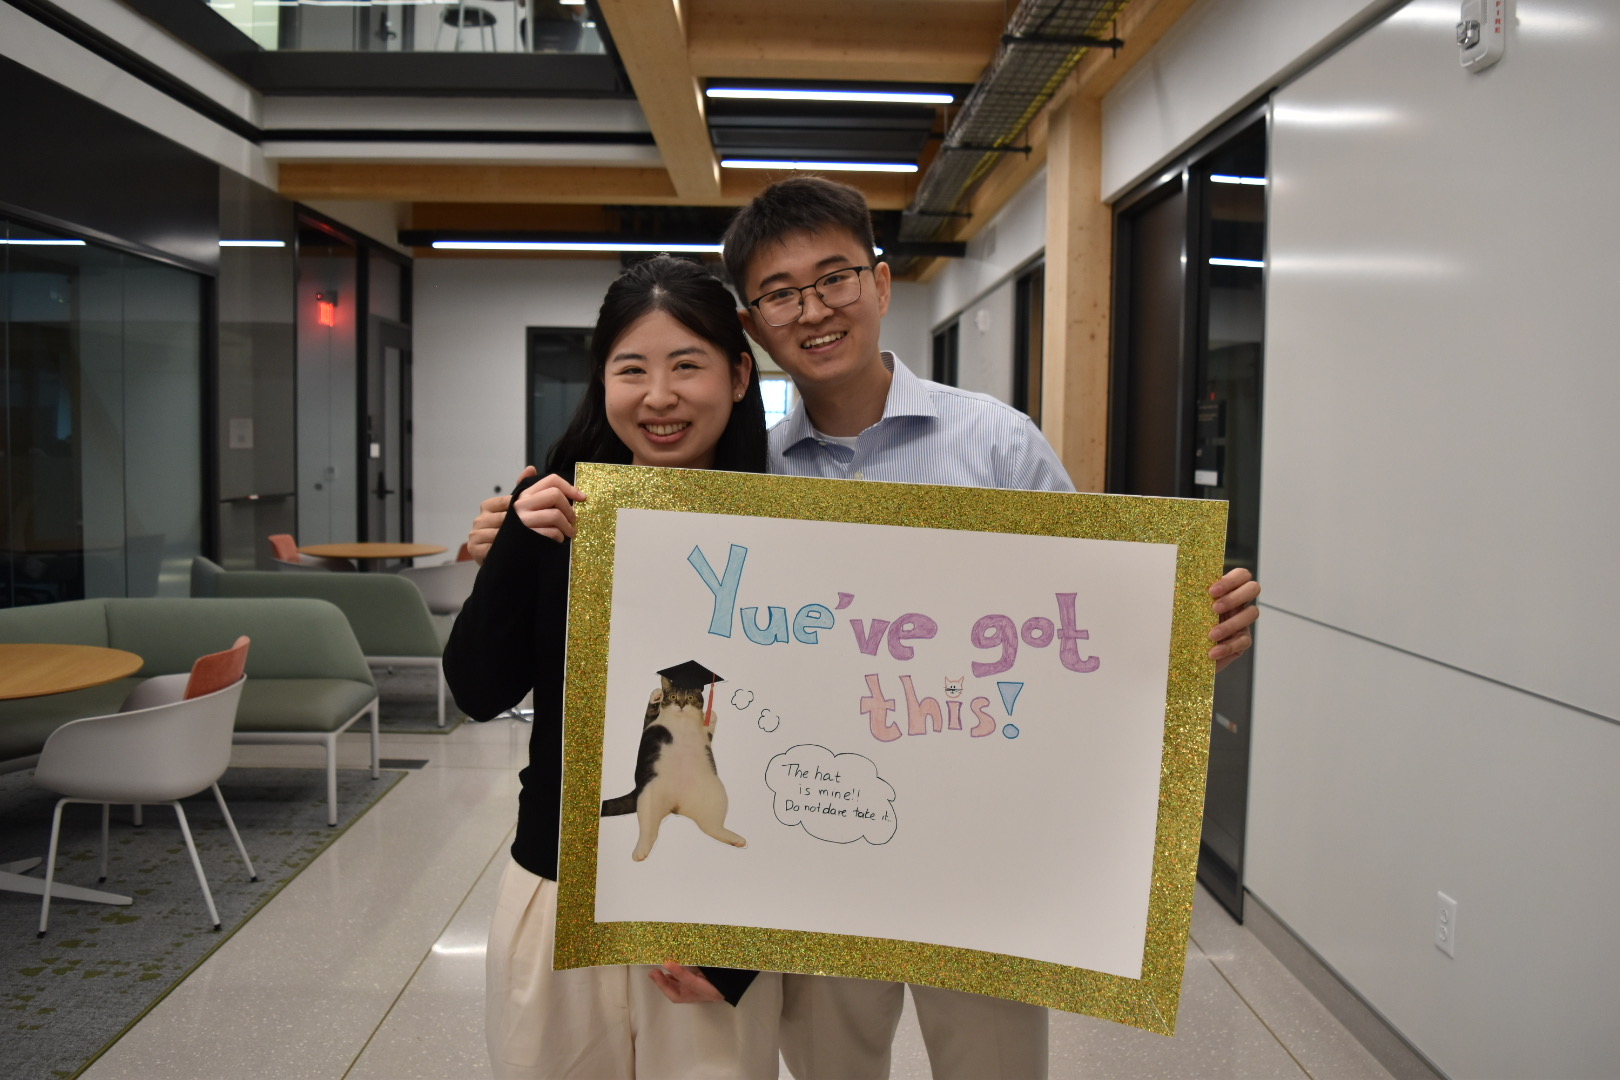 Yue've got
this!
The hat
is mine!!
Do not dare take it.
FIRE